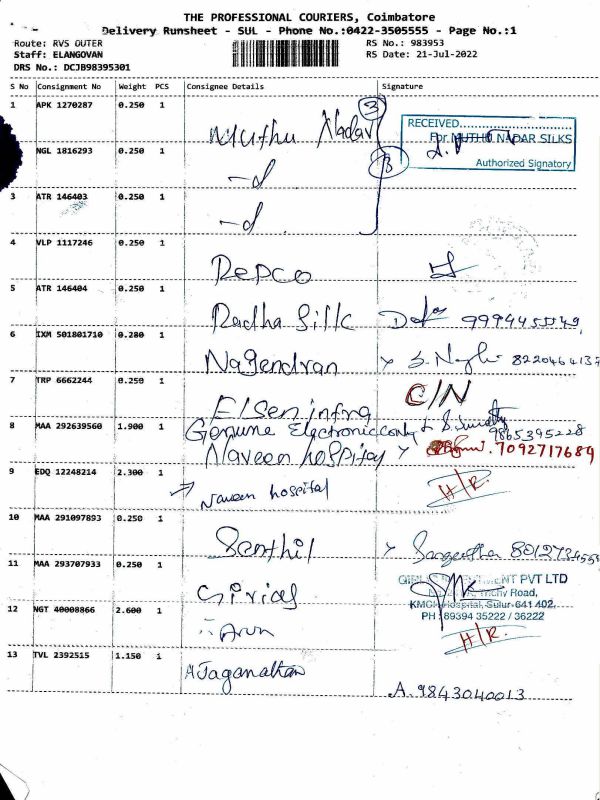 THE PROFESSIONAL COURIERS, Coimbatore
Delivery Runsheet - SUL - Phone No.:0422-3505555 - Page No.:1
Route: RVS OUTER RS No.: 983953
Staff: ELANGOVAN RS Date: 21-Jul-2022
DRS No.: DCJB98395301
S No Consignment No Weight PCS Consignee Details Signature
1 APK 1270287 0.250 1
Muthu Nadar 3
RECEIVED
For MUTHU NADAR SILKS
Authorized Signatory
NGL 1816293 0.250 1
-d 3
3 ATR 146403 0.250 1
-d
4 VLP 1117246 0.250 1
Repco
5 ATR 146404 0.250 1
Radha Silk 9994455549
6 IXM 501801710 0.280 1
Nagendran 8220464137
7 TRP 6662244 0.250 1
C/N
8 MAA 292639560 1.900 1
Genuine 9865395228
Naveen hospital 7092717689
9 EDQ 12248214 2.300 1
Naveen hospital H/R.
10 MAA 291097893 0.250 1
Senthil Sangeetha
11 MAA 293707933 0.250 1
Girias
PVT LTD
Trichy Road,
KMCH Hospital, Sulur-641 402.
PH : 89394 35222 / 36222
12 NGT 40008866 2.600 1
Arun H/R.
13 TVL 2392515 1.150 1
A Jaganathan
A. 9843040013